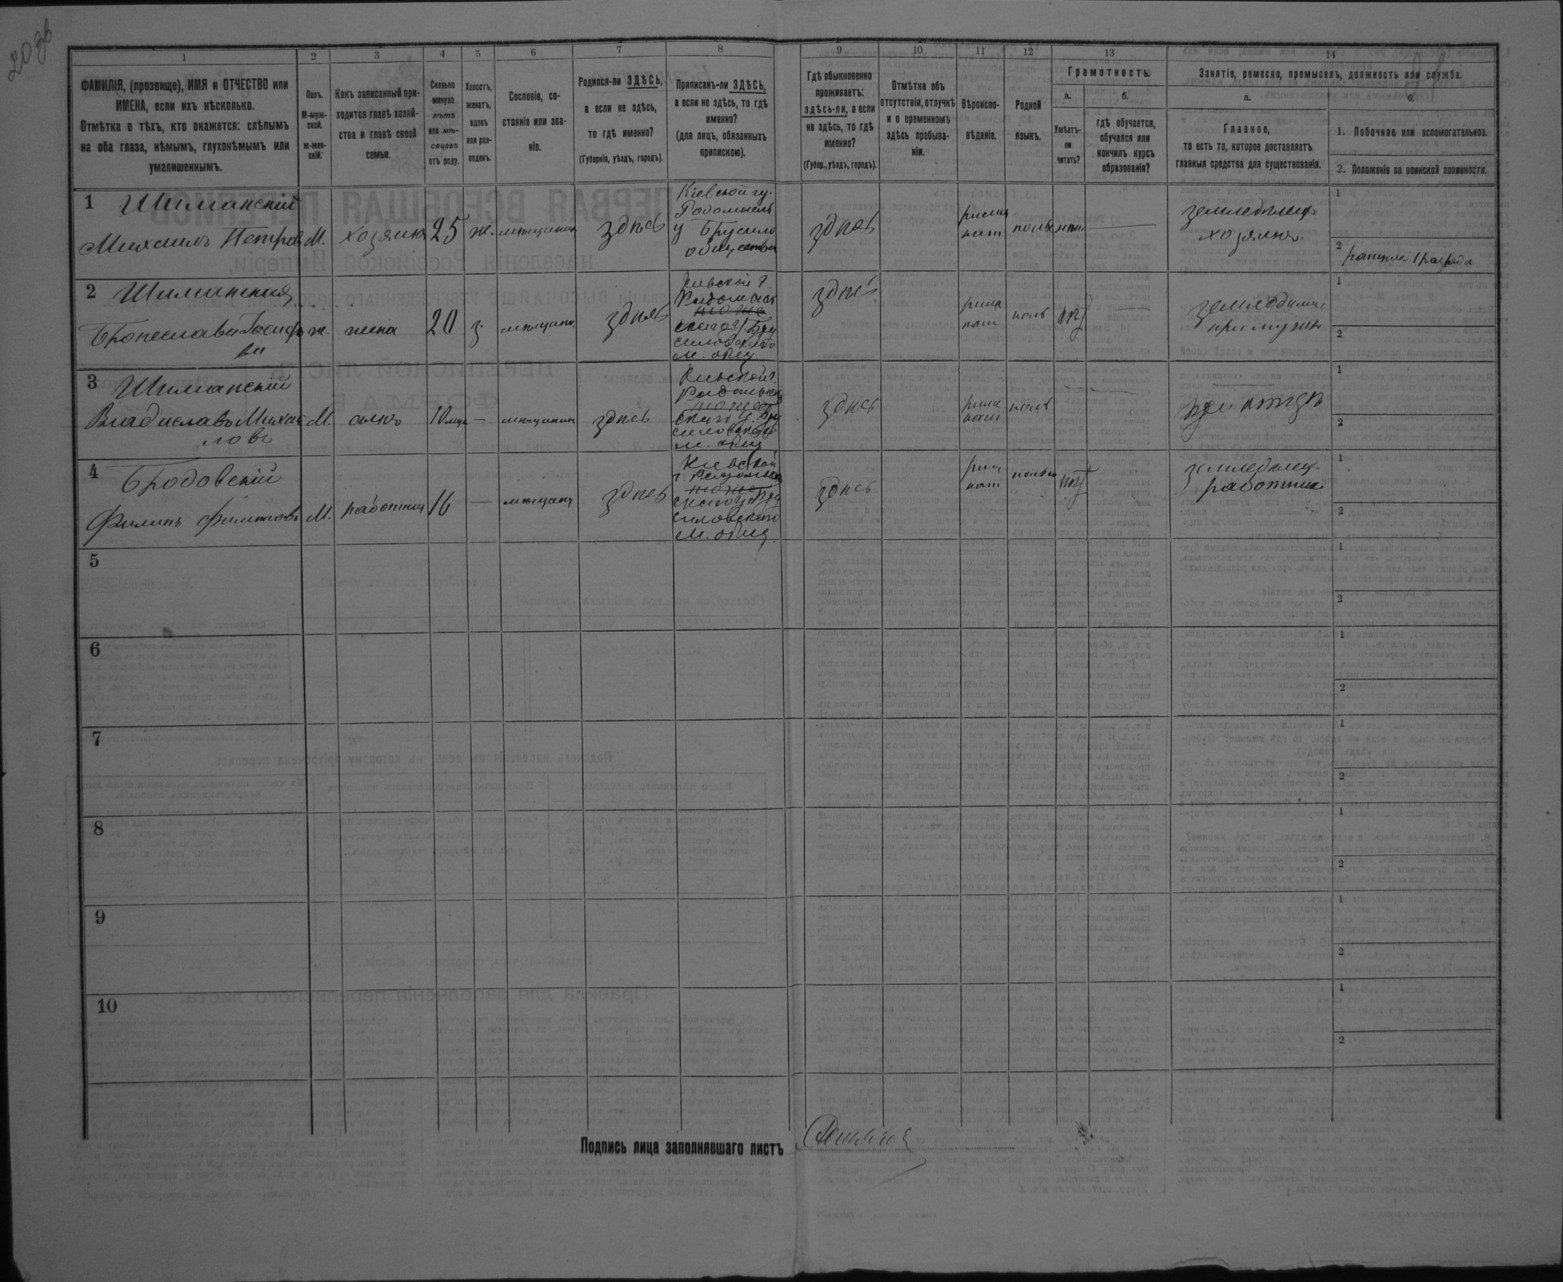 203б
1
2
3
4
5
6
7
8
9
10
11
12
13
14
ФАМИЛІЯ, (прозвище), ИМЯ и ОТЧЕСТВО или
ИМЕНА, если ихъ нѣсколько.
Отмѣтка о тѣхъ, кто окажется: слѣпымъ
на оба глаза, нѣмымъ, глухонѣмымъ или
умалишеннымъ.
Полъ.
М-муж-
ской.
ж-жен-
скій.
Какъ записанный при-
ходится главѣ хозяй-
ства и главѣ своей
семьи.
Сколько
минуло
лѣтъ
или мѣ-
сяцевъ
отъ роду.
Холостъ,
женатъ,
вдовъ
или раз-
веденъ.
Сословіе, со-
стояніе или зва-
ніе.
Родился-ли ЗДѢСЬ,
а если не здѣсь,
то гдѣ именно?
(Губернія, уѣздъ, городъ).
Приписанъ-ли ЗДѢСЬ,
а если не здѣсь, то гдѣ
именно?
(для лицъ, обязанныхъ
припискою).
Гдѣ обыкновенно
проживаетъ:
здѣсь-ли, а если
не здѣсь, то гдѣ
именно?
(Губер., уѣздъ, городъ).
Отмѣтка объ
отсутствіи, отлучкѣ
и о временномъ
здѣсь пребыва-
ніи.
Вѣроиспо-
вѣданіе.
Родной
языкъ.
Грамотность.
а.
Умѣетъ-
ли
читать?
б.
гдѣ обучается,
обучался или
кончилъ курсъ
образованія?
Занятіе, ремесло, промыселъ, должность или служба.
а.
Главное,
то есть то, которое доставляетъ
главныя средства для существованія.
б.
1. Побочное или вспомогательное.
2. Положеніе по воинской повинности.
1 Шиманскій
Михаилъ Петров
М.
хозяинъ
25
ж.
мѣщанинъ
здѣсь
Кіевской гу.
Радомысль
у Брусило
общества
здѣсь
римск
кат
польк
нѣтъ
земледѣлец
хозяинъ
1
2 ратник 1 разряда
2 Шиманская
Ж.
жена
20
з.
мѣщанк
здѣсь
Кіевской г.
м. общ
здѣсь
римк
кат
поль
нѣт
земледѣлие
при мужѣ
1
2
3 Шиманскій
Владиславъ Михаи
ловъ
М.
сынъ
10 мця
—
мѣщанин
здѣсь
Кіевской г.
м. общ
здѣсь
римк
кат
поль
при отцѣ
1
2
4 Бродовскій
Филипъ Филиповъ
М.
работник
16
—
мѣщанн
здѣсь
Кіевской
м. общ.
здѣсь
рим
кат
польск
нѣт
земледѣлец.
работник
1
2
5
1
2
6
1
2
7
1
2
8
1
2
9
1
2
10
1
2
Подпись лица заполнявшаго листъ